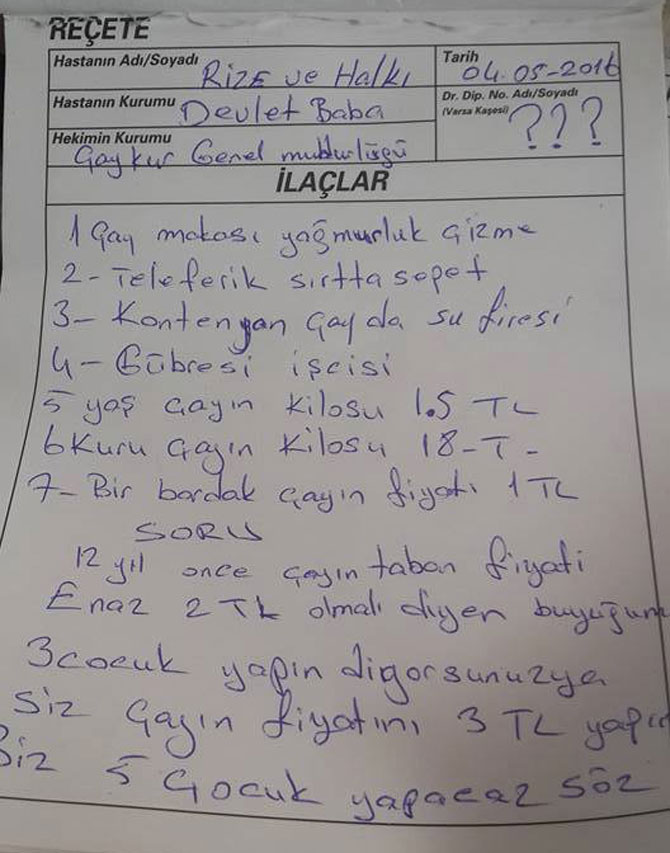 REÇETE
Hastanın Adı/Soyadı Rize ve Halkı
Tarih 04.05-2016
Hastanın Kurumu Devlet Baba
Dr. Dip. No. Adı/Soyadı
(Varsa Kaşesi) ???
Hekimin Kurumu Çaykur Genel mudurlüğü
İLAÇLAR
1 Çay makası yağmurluk çizme
2- Teleferik sırtta sepet
3- Kontenyan çay da su firesi
4- Gübresi işcisi
5 yaş çayın kilosu 1.5 TL
6 Kuru çayın kilosu 18-T-
7- Bir bardak çayın fiyatı 1 TL
SORU
12 yıl once çayın taban fiyati
Enaz 2 TL olmalı diyen buyuğum
3 cocuk yapın diyorsunuzya
Siz çayın fiyatını 3 TL yapın
Biz 5 çocuk yapacaz söz